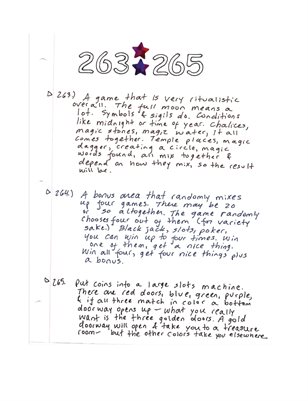 263 265
263) A game that is very ritualistic
overall. The full moon means a
lot. Symbols & sigils do. Conditions
like midnight or time of year. Chalices,
magic stones, magic water, it all
comes together. Temple places, magic
dagger, creating a circle, magic
words found, all mix together &
depend on how they mix, so the result
will be.
264) A bonus area that randomly mixes
up four games. There may be 20
or so altogether. The game randomly
chooses four out of them (for variety
sake.) Black jack, slots, poker,
you can win up to four times. Win
one of them, get a nice thing.
Win all four, get four nice things plus
a bonus.
265. Put coins into a large slots machine.
There are red doors, blue, green, purple,
& if all three match in color a bottom
doorway opens up - what you really
want is the three golden doors. A gold
doorway will open & take you to a treasure
room - but the other colors take you elsewhere.